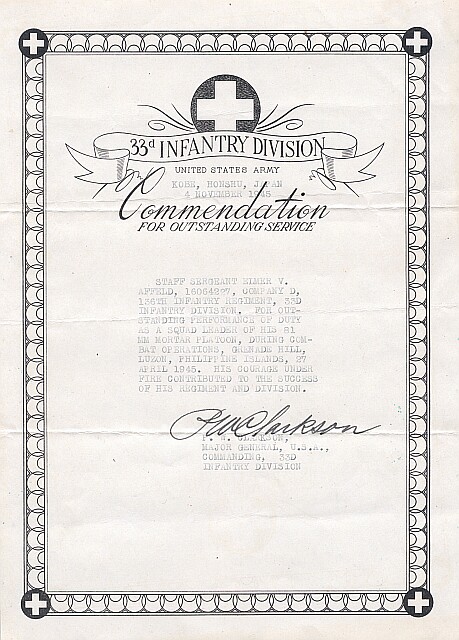 33d INFANTRY DIVISION
UNITED STATES ARMY
KOBE, HONSHU, JAPAN
4 NOVEMBER 1945
Commendation
FOR OUTSTANDING SERVICE
STAFF SERGEANT ELMER V.
AFFELD, 16064227, COMPANY D,
136TH INFANTRY REGIMENT, 33D
INFANTRY DIVISION. FOR OUT-
STANDING PERFORMANCE OF DUTY
AS A SQUAD LEADER OF HIS 81
MM MORTAR PLATOON, DURING COM-
BAT OPERATIONS, GRENADE HILL,
LUZON, PHILIPPINE ISLANDS, 27
APRIL 1945. HIS COURAGE UNDER
FIRE CONTRIBUTED TO THE SUCCESS
OF HIS REGIMENT AND DIVISION.
P W Clarkson
P. W. CLARKSON,
MAJOR GENERAL, U.S.A.,
COMMANDING, 33D
INFANTRY DIVISION